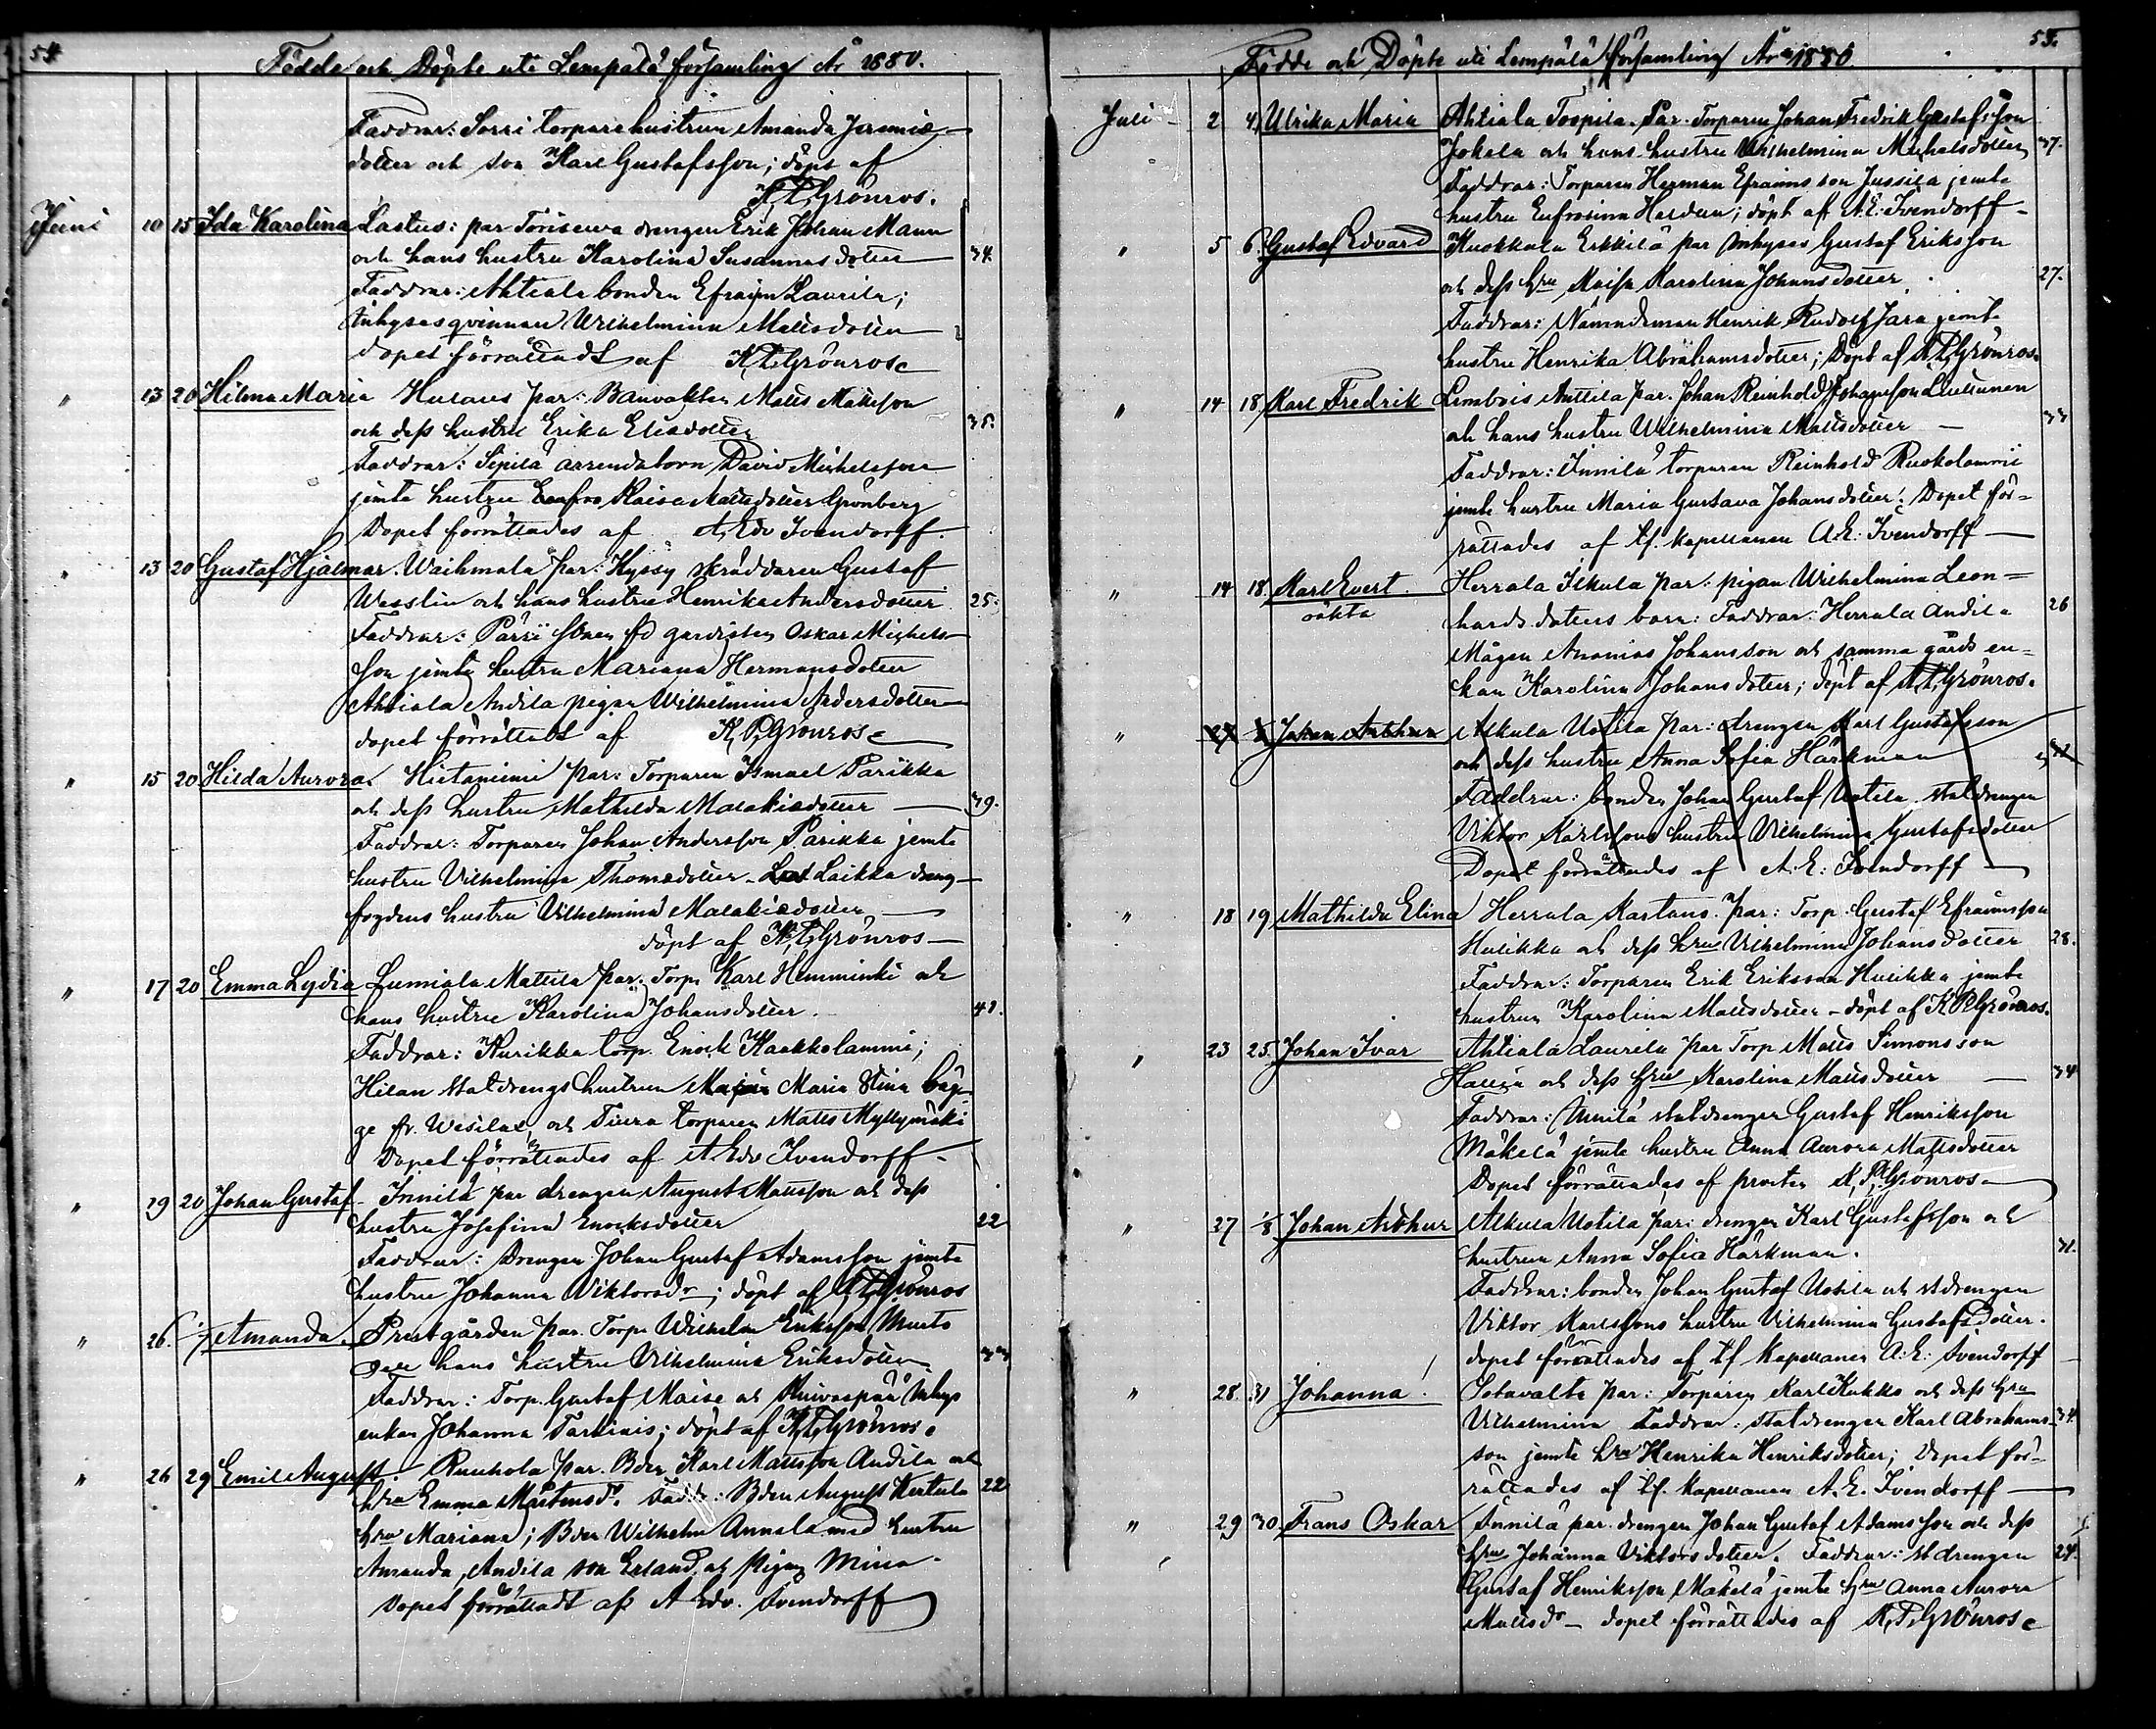 54
Födde och Döpte uti Lempälä församling År 1880.
Faddrar: Sorri torparehustrun Amanda Jeremie-
dotter och son Karl Gustafsson; döpt af
K.P. Grönros.
Juni 10 15 Ida Karolina Lastus: par Toriseva drengen Erik Johan Mann
och hans hustru Karolina Susannasdotter 34.
Faddrar: Ahtiala bonden Efraim Laurila;
Inhysesqvinnan Wilhelmina Mattsdotter
dopet förrättadt af K.P. Grönros
" 13 20 Hilma Maria Hulaus par: Banvakten Matts Mattsson
och dess hustru Erika Eliedotter 35.
Faddrar: Sipilä arrendatorn David Michelsson
jemte hustru Kaisa Mattsdotter Grönberg
Dopet förrättades af A. Edv Ivendorff.
" 13 20 Gustaf Hjalmar. Waihmala par: Hyssy skräddaren Gustaf
Wesslin och hans hustru Henrika Andersdotter 25.
Faddrar: Pärri sonen fd gardisten Oskar Michels-
son jemte hustru Mariana Hermansdotter
Ahtiala Andila pigan Wilhelmina Andersdotter
dopet förrättadt af K.P. Grönros
" 15 20 Hilda Aurora. Hietaniemi par: Torparen Ismael Parikka
och dess hustru Mathilda Malakiedotter 39.
Faddrar: Torparen Johan Andersson Parikka jemte
hustru Vilhelmina Thomedotter. Laikka dreng-
fogdens hustru Vilhelmina Malakiedotter
döpt af K.P. Grönros
" 17 20 Emma Lydia Lumiala Mattila par: Torp. Karl Hemminki och
hans hustru Karolina Johansdotter. 41.
Faddrar: Kurikka torp. Enok Kaakkolammi;
Hilan statdrengs hustrun Maria Stina Båg-
ge fr. Wesilax, och Tiura torparen Matts Myllymäki
Dopet förrättades af A Edv Ivendorff.
" 19 20 Johan Gustaf Innilä par drengen August Mattsson och dess
hustru Josefina Enoksdotter 22
Faddrar: Drengen Johan Gustaf Adamsson jemte
hustru Johanna Viktorsdr; döpt af K.P. Grönros
" 26. Amanda. Prestgården par. Torp. Wilhelm Eriksson Murto
och hans hustru Vilhelmina Eriksdotter
Faddrar: Torp. Gustaf Maise och Kuivaspää Inhys
enkan Johanna; döpt af K.P. Grönros.
" 26 29 Emil August. Ruuhola par. Bden Karl Mattsson Andila och
hru Emma Mårtensdr. Faddr: Bden August Kertula 22
hru Mariana; Bden Wilhelm Annala med hustru
Amanda, Andila son Erland, och pigan Mina.
Dopet förrättadt af A Edv. Ivendorff
55.
Födde och Döpte uti Lempälä församling År 1880
Juli 2 4 Ulrika Maria Ahtiala Toopila. Par. Torparen Johan Fredrik Gustafsson
Jokela och hans hustru Wilhelmina Michelsdotter 37.
Faddrar: Torparen Herman Efraimsson Jussila jemte
hustru Eufrosina; döpt af A.E. Ivendorff
" 5 6. Gustaf Edvard Kuokkala Erkkilä par Inhyses Gustaf Eriksson
och dess hru Maija Karolina Johansdotter 27.
Faddrar: Nämndeman Henrik Rudolf Jara jemte
hustru Henrika Abrahamsdotter; Döpt af K.P. Grönros.
" 14 18 Karl Fredrik Lembois Anttila par. Johan Reinhold Johansson Liulunen
och hans hustru Wilhelmina Mattsdotter 33
Faddrar: Innilä torparen Reinhold Ruokolammi
jemte hustru Maria Gustava Johansdotter: Dopet för-
rättades af tf. kapellanen A.E. Ivendorff
" 14 18 Karl Evert. Herrala Ilkula par: pigan Wilhelmina Leon-
oäkta hardsdotters barn: Faddrar: Herrala Andila 26
Mågen Ananias Johansson och samma gårds en-
kan Karolina Johansdotter; döpt af K.P. Grönros.
" 27 Johan Arthur Alkula Uotila par: drengen Karl Gustafsson
och dess hustru Anna Sofia Härkman
Faddrar: bonden Johan Gustaf Uotila statdrengen
Viktor Karlssons hustru Vilhelmina Gustafsdotter
Dopet förrättades af A.E. Ivendorff
" 18 19 Mathilda Elina Herrala Kartano. par: Torp. Gustaf Efraimsson
Hulikka och dess hru Vilhelmina Johansdotter 28.
Faddrar: Torparen Erik Eriksson Hulikka jemte
hustrun Karolina Mattsdotter - döpt af K.P. Grönros.
" 23 25. Johan Ivar Ahtiala Laurila par Torp Matts Simonsson
och dess hru Karolina Mattsdotter 34
Faddrar: Innilä statdrengen Gustaf Henriksson
Mäkelä jemte hustru Anna Aurora Mattsdotter
Dopet förrättades af prosten K.P. Grönros
" 27 1/8 Johan Arthur Alkula Uotila par: drengen Karl Gustafsson och
hustrun Anna Sofia Härkman. 31.
Faddrar: bonden Johan Gustaf Uotila och stdrengen
Viktor Karlssons hustru Vilhelmina Gustafsdotter.
dopet förrättades af tf kapellanen A.E. Ivendorff
" 28. 31 Johanna. Sotavalta par: Torparen Karl Kukko och dess hru
Vilhelmina Faddrar: statdrengen Karl Abrahams- 34.
son jemte hru Henrika Henriksdotter; Dopet för-
rättades af tf. kapellanen A.E. Ivendorff
" 29 30 Frans Oskar Innilä par. drengen Johan Gustaf Adamsson och dess
hru Johanna Viktorsdotter. Faddrar: stdrengen 24.
Gustaf Henriksson Mäkelä jemte hru Anna Aurora
Mattsdr - dopet förrättades af K.P. Grönros